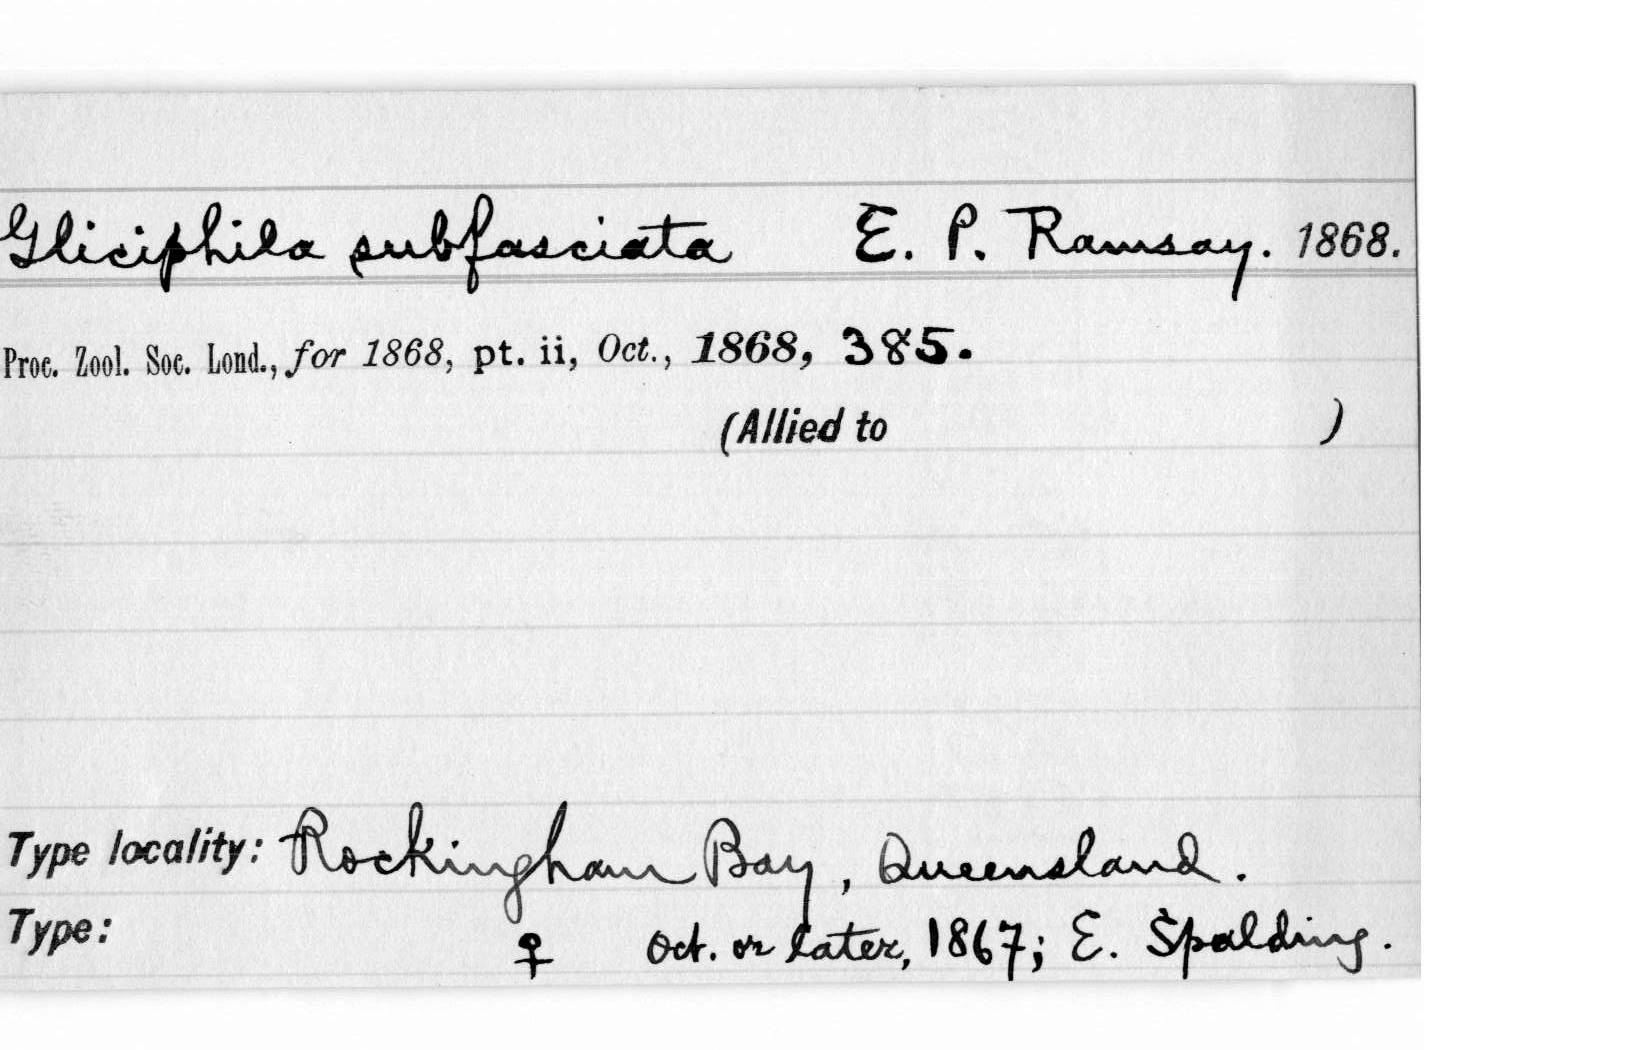 Gliciphila subfasciata E. P. Ramsay. 1868.
Proc. Zool. Soc. Lond., for 1868, pt. ii, Oct., 1868, 385.
(Allied to )
Type locality: Rockingham Bay, Queensland.
Type: ♀ Oct. or later, 1867; E. Spalding.